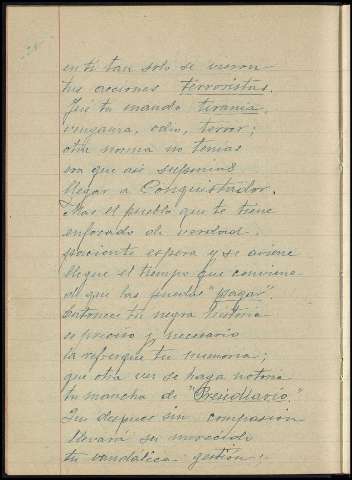 en ti tan solo se vieron
tus acciones terroristas.
Fué tu mando tirania,
venganza, odio, terror;
otra norma no tenias
era que asi suponias
llegar a Conquistador.
Mas el pueblo que te tiene
enfocado de verdad.
paciente espera y se aviene
llegue el tiempo que conviene
de que las puedas "pagar".
Entonces tu negra historia
es preciso y necesario
la refresque tu memoria;
que otra vez se haga notoria
tu mancha de "Presidiario."
Que despues sin compasión
llevará su merecido
tu vandalica gestión;